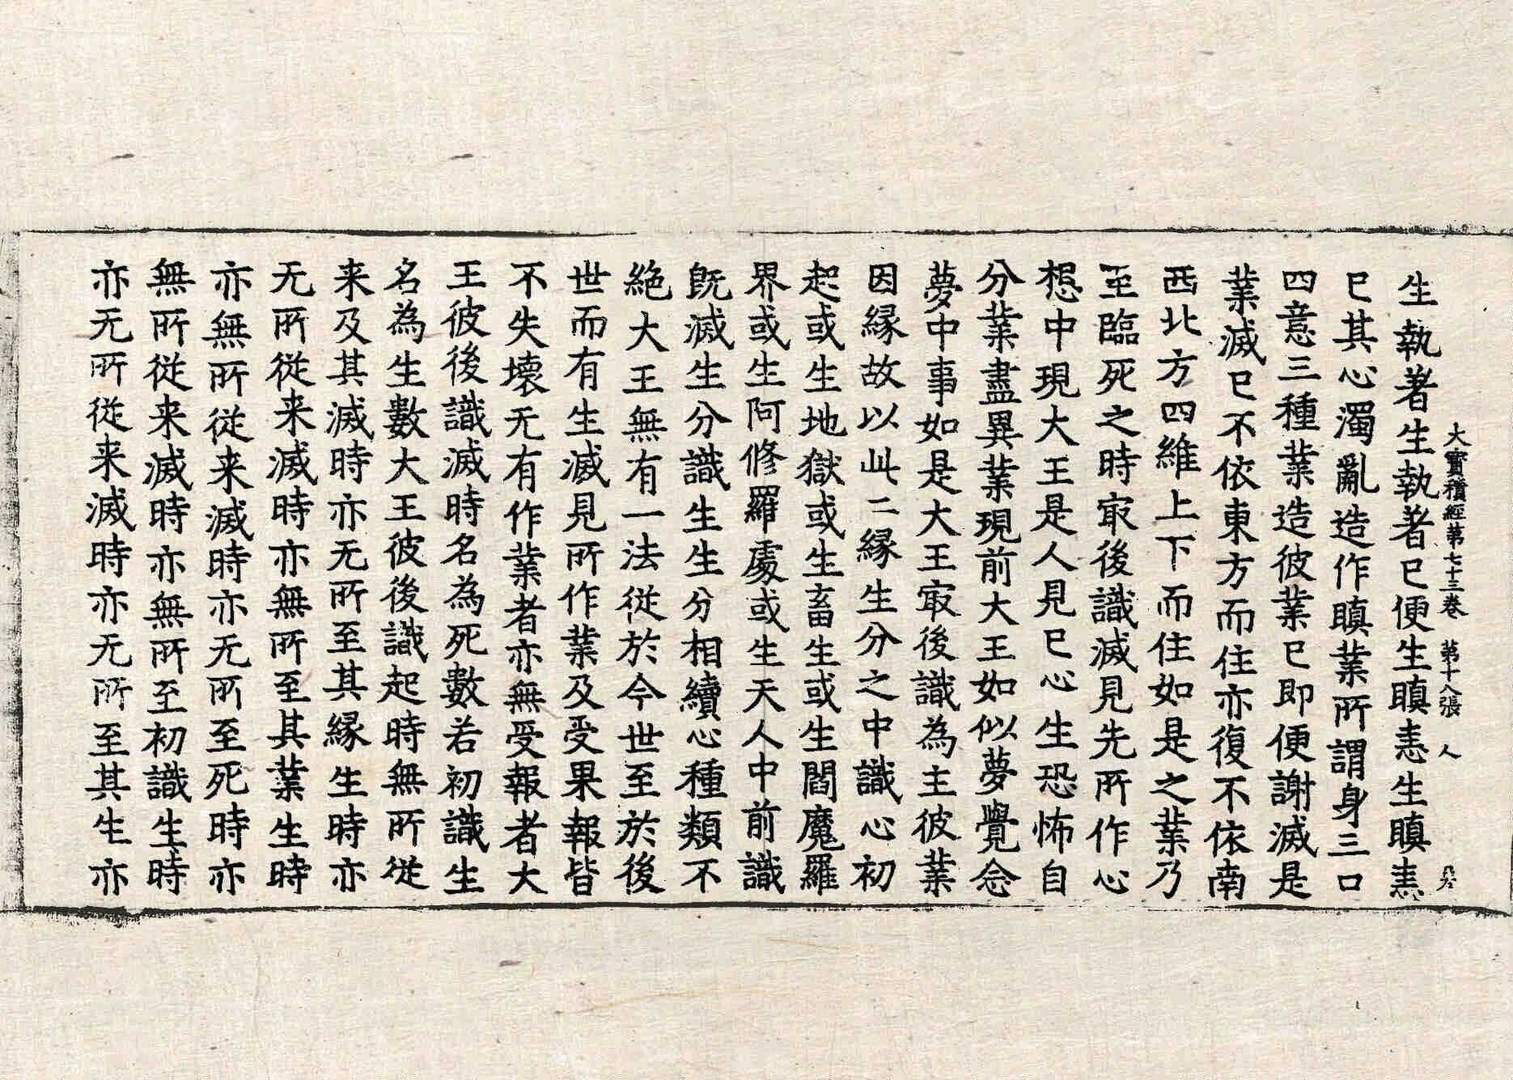 大寶積經第七十三卷　第十八張　人
生執著生執著已便生瞋恚生瞋恚
已其心濁亂造作瞋業所謂身三口
四意三種業造彼業已即便謝滅是
業滅已不依東方而住亦復不依南
西北方四維上下而住如是之業乃
至臨死之時㝡後識滅見先所作心
想中現大王是人見已心生恐怖自
分業盡異業現前大王如似夢覺念
夢中事如是大王㝡後識為主彼業
因緣故以此二緣生分之中識心初
起或生地獄或生畜生或生閻魔羅
界或生阿修羅處或生天人中前識
既滅生分識生生分相續心種類不
絕大王無有一法從於今世至於後
世而有生滅見所作業及受果報皆
不失壞无有作業者亦無受報者大
王彼後識滅時名為死數若初識生
名為生數大王彼後識起時無所從
来及其滅時亦无所至其緣生時亦
无所從来滅時亦無所至其業生時
亦無所從来滅時亦无所至死時亦
無所從来滅時亦無所至初識生時
亦无所從来滅時亦无所至其生亦